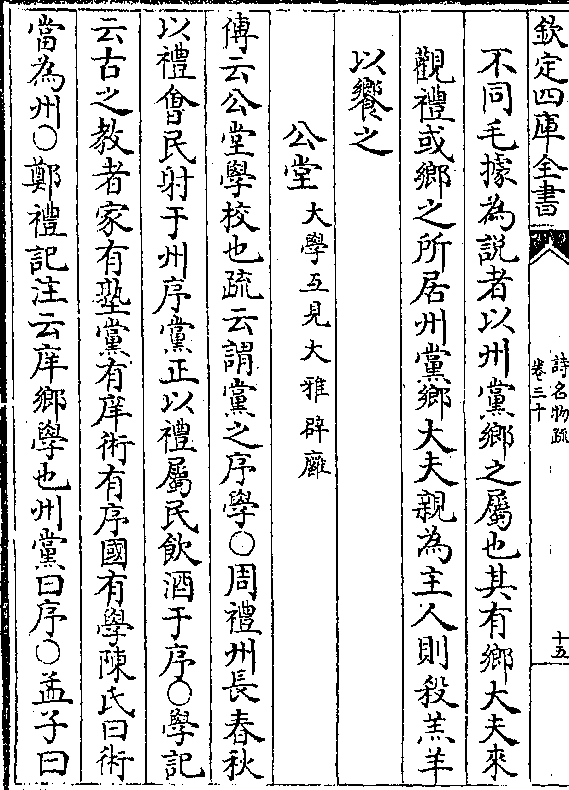 欽定四庫全書
詩名物疏
卷三十
十五
不同毛據為説者以州黨鄉之屬也其有鄉大夫來
觀禮或鄉之所居州黨鄉大夫親為主人則殺羔羊
以饗之
公堂大學互見大雅辟廱
傳云公堂學校也疏云謂黨之序學○周禮州長春秋
以禮會民射于州序黨正以禮屬民飲酒于序○學記
云古之教者家有塾黨有庠術有序國有學陳氏曰術
當為州○鄭禮記注云庠鄉學也州黨曰序○孟子曰